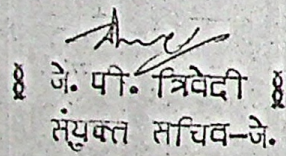 § जे. पी. त्रिवेदी §
संयुक्त सचिव-जे.